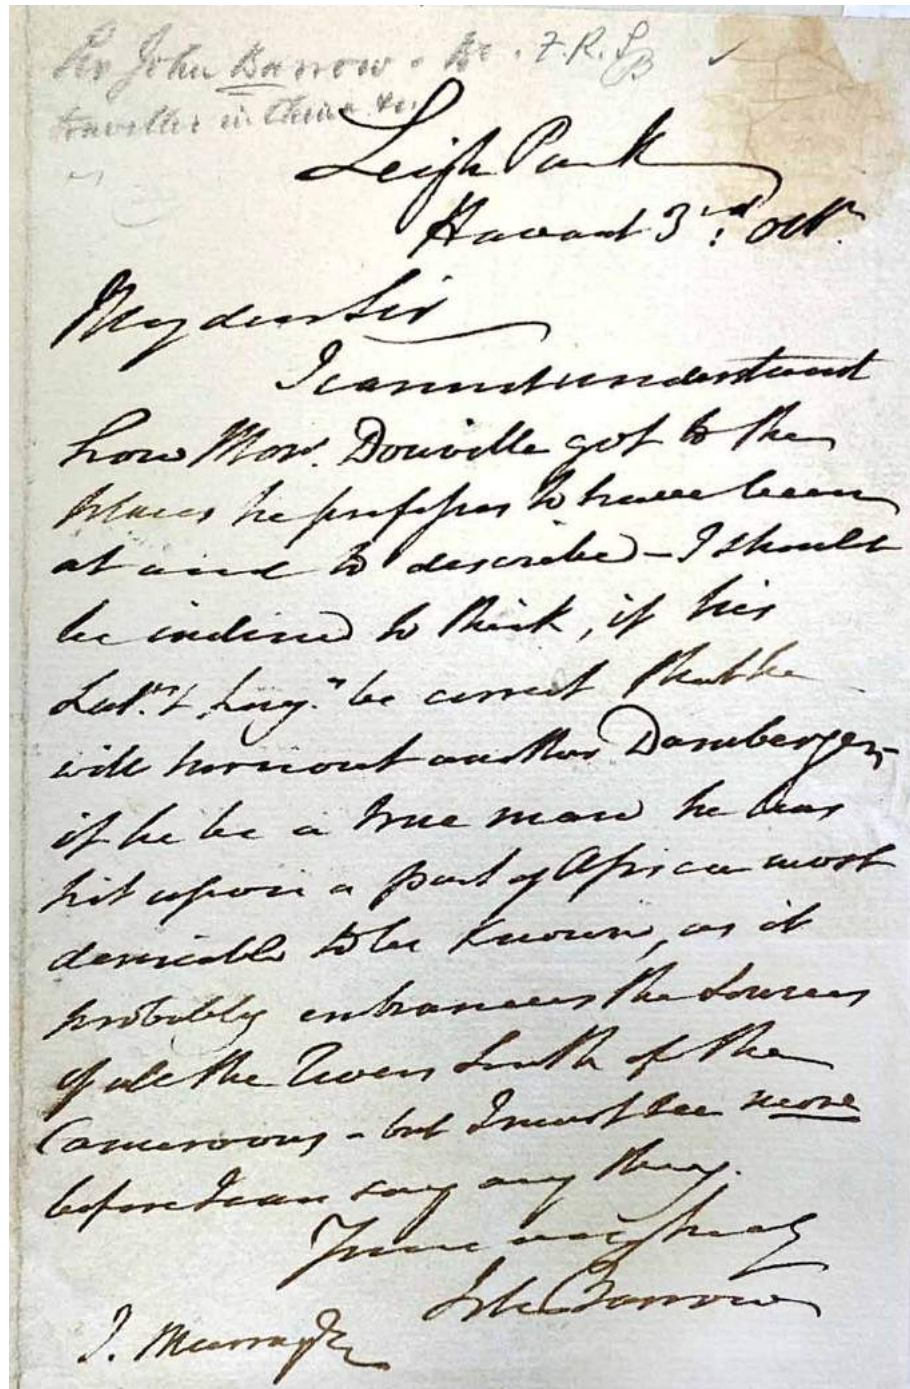 Sir John Barrow. Bt. F.R.S.
traveller in China &c.
Leigh Park
Havant 3rd. Octr.
My dear Sir
I cannot understand
how Monr. Douville got to the
places he professes to have been
at and to describe - I should
be inclined to think, if his
Latn. & Longn. be correct that he
will turn out another Damberger -
if he be a true man he has
hit upon a part of Africa most
desirable to be known, as it
probably embraces the sources
of all the Rivers South of the
Cameroons - but I must see more
before I can say any thing.
Yours very truly
John Barrow
J. Murray